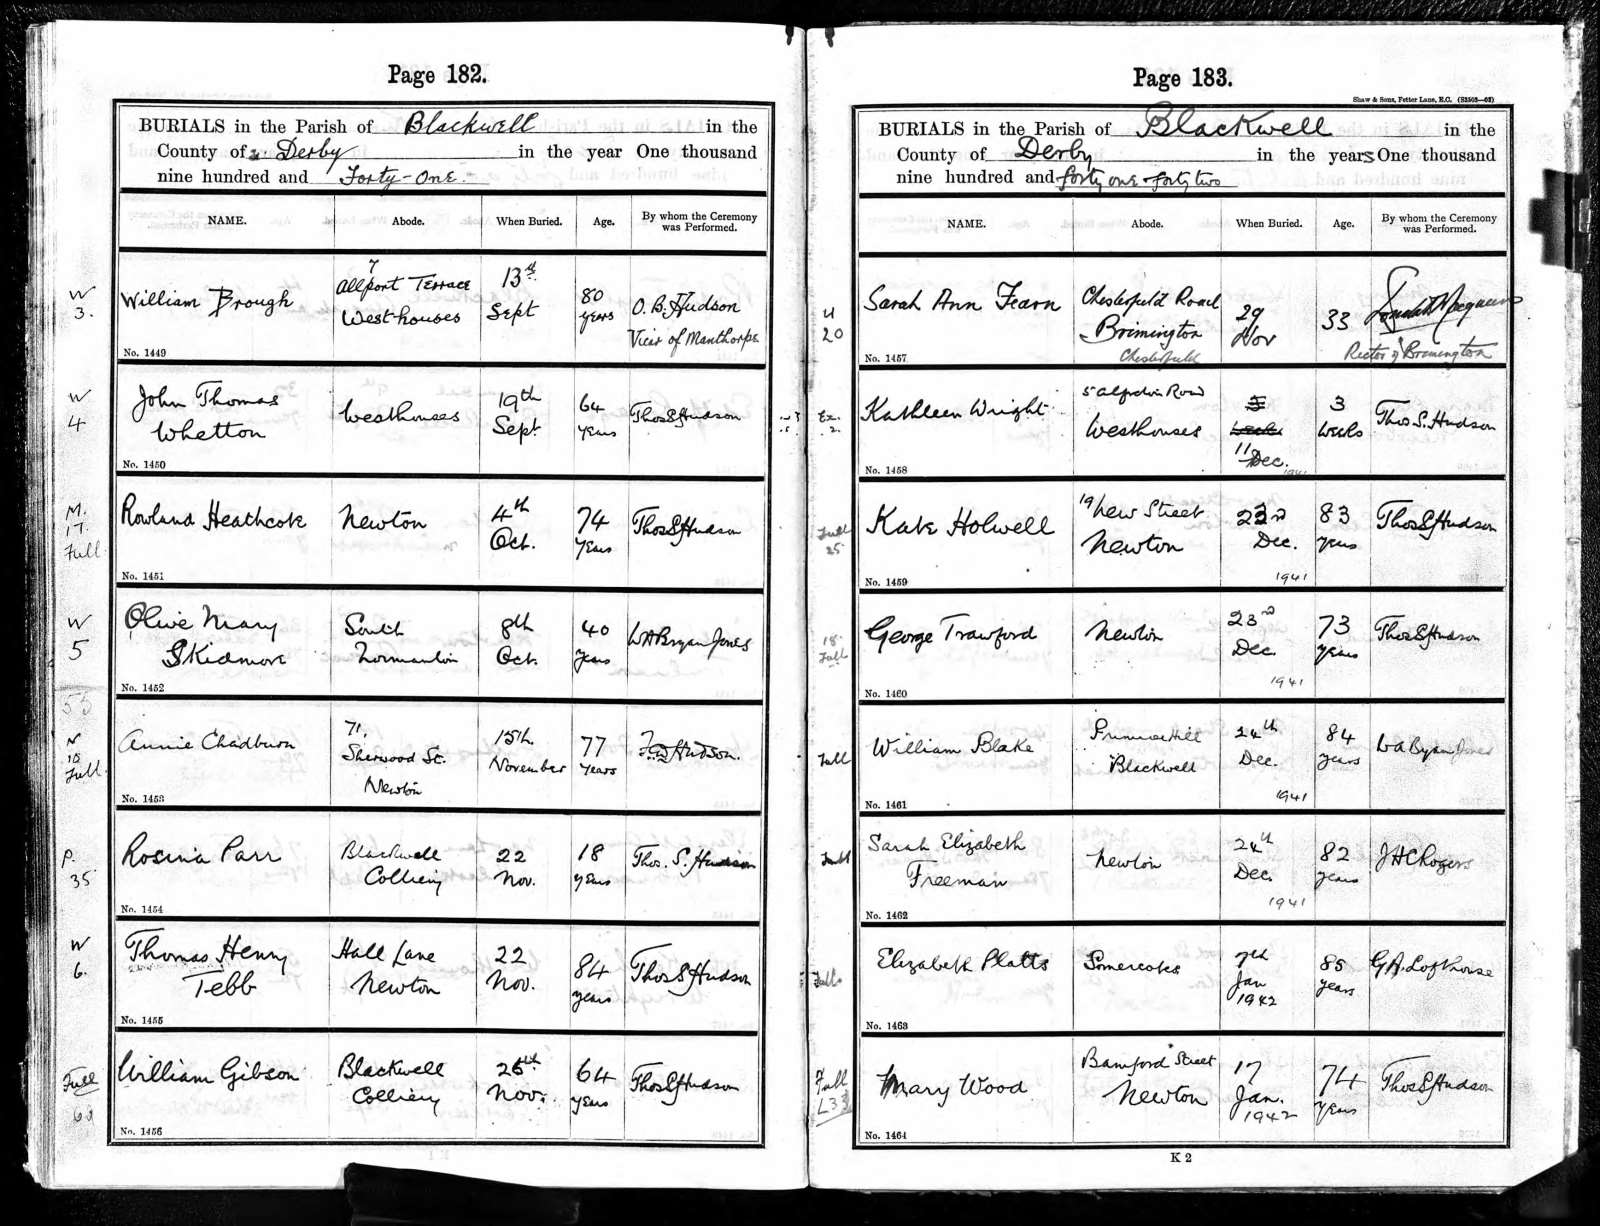 Page 182.
BURIALS in the Parish of Blackwell in the
County of Derby in the year One thousand
nine hundred and Forty-One.
NAME. Abode. When Buried. Age. By whom the Ceremony was Performed.
W 3.
William Brough
7 Allport Terrace
Westhouses
13th Sept
80 years
O. B. Hudson
Vicar of Manthorpe
No. 1449
W 4
John Thomas
Whetton
Westhouses
19th Sept.
64 years
Thos S Hudson
No. 1450
M. 17. Full
Rowland Heathcote
Newton
4th Oct.
74 years
Thos S Hudson
No. 1451
W 5
Olive Mary
Skidmore
South
Normanton
8th Oct.
40 years
W A Bryan Jones
No. 1452
53
N 10 Full
Annie Chadburn
71,
Sherwood St.
Newton
15th.
November
77 years
Hudson.
No. 1453
P. 35
Rosina Parr
Blackwell
Colliery
22 Nov.
18 years
Thos. S. Hudson
No. 1454
W 6.
Thomas Henry
Tebb
Hall Lane
Newton
22 Nov.
84 years
Thos S Hudson
No. 1455
Full
William Gibson
Blackwell
Colliery
Nov.
64 years
Thos S Hudson
No. 1456
Page 183.
Shaw & Sons, Fetter Lane, E.C.
BURIALS in the Parish of Blackwell in the
County of Derby in the years One thousand
nine hundred and forty one - forty two
NAME. Abode. When Buried. Age. By whom the Ceremony was Performed.
20
Sarah Ann Fearn
Chesterfield Road
Brimington
Chesterfield
29 Nov
33
Rector of Brimington
No. 1457
Kathleen Wright
5 Alfreton Row
Westhouses
11 Dec. 1941
3 weeks
Thos S. Hudson
No. 1458
Full 25
Kate Holwell
19 New Street
Newton
Dec. 1941
83 years
Thos S Hudson
No. 1459
18 Full
George Trawford
Newton
23rd Dec. 1941
73 years
Thos S Hudson
No. 1460
Full
William Blake
Primrose Hill
Blackwell
24th Dec. 1941
84 years
W A Bryan Jones
No. 1461
Full
Sarah Elizabeth
Freeman
Newton
24th Dec. 1941
82 years
J H C Rogers
No. 1462
Full
Elizabeth Platts
Somercotes
7th Jan 1942
85 years
G. A. Lofthouse
No. 1463
Full L33
Mary Wood
Bamford Street
Newton
17 Jan. 1942
74 years
Thos S Hudson
No. 1464
K 2